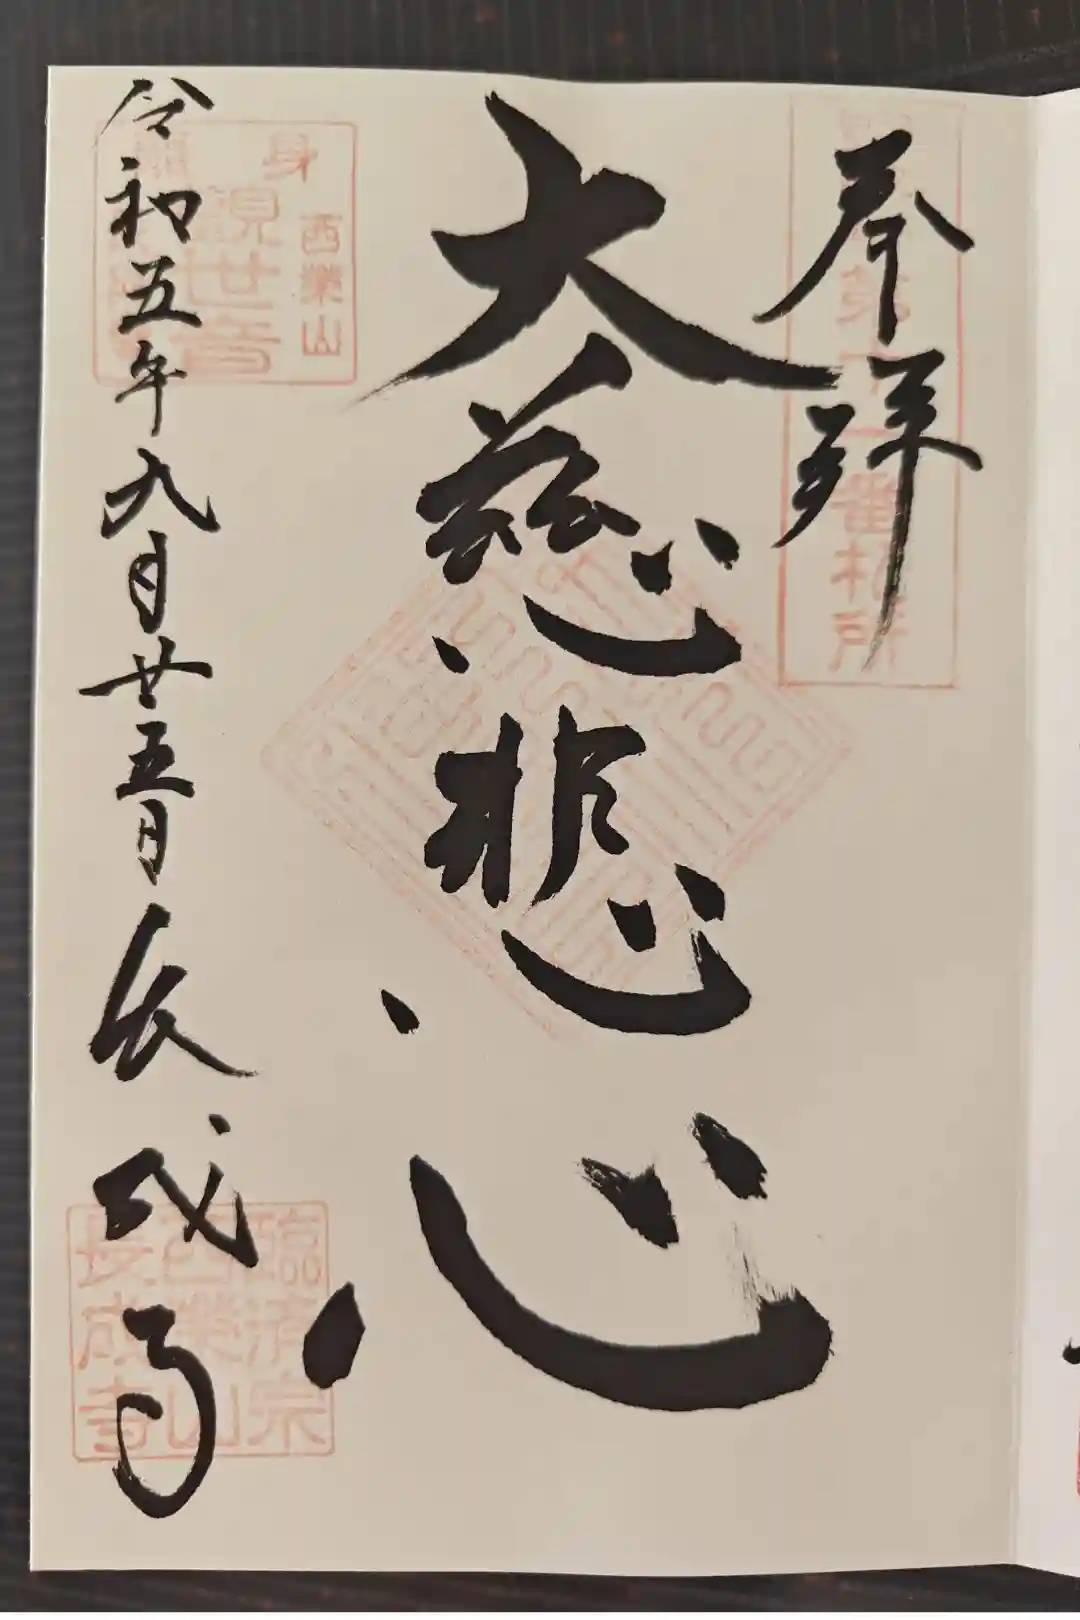 奉拝
大慈悲心
令和五年九月廿五日
長成寺
番札所
身
西業山
観世音
臨済宗
西業山
長成寺